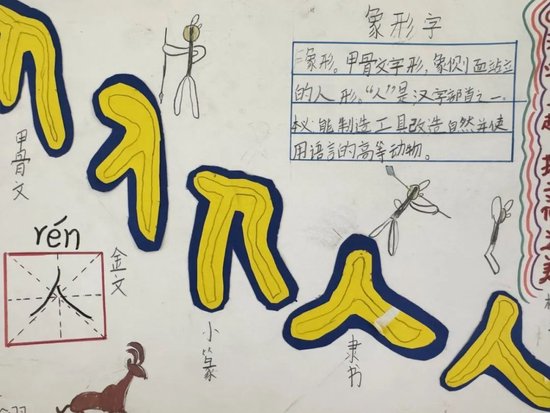 象形字
象形。甲骨文字形,象侧面站立
的人形。“人”是汉字部首之一。
本义:能制造工具改造自然并使
用语言的高等动物。
甲骨文
rén
人
金文
小篆
隶书